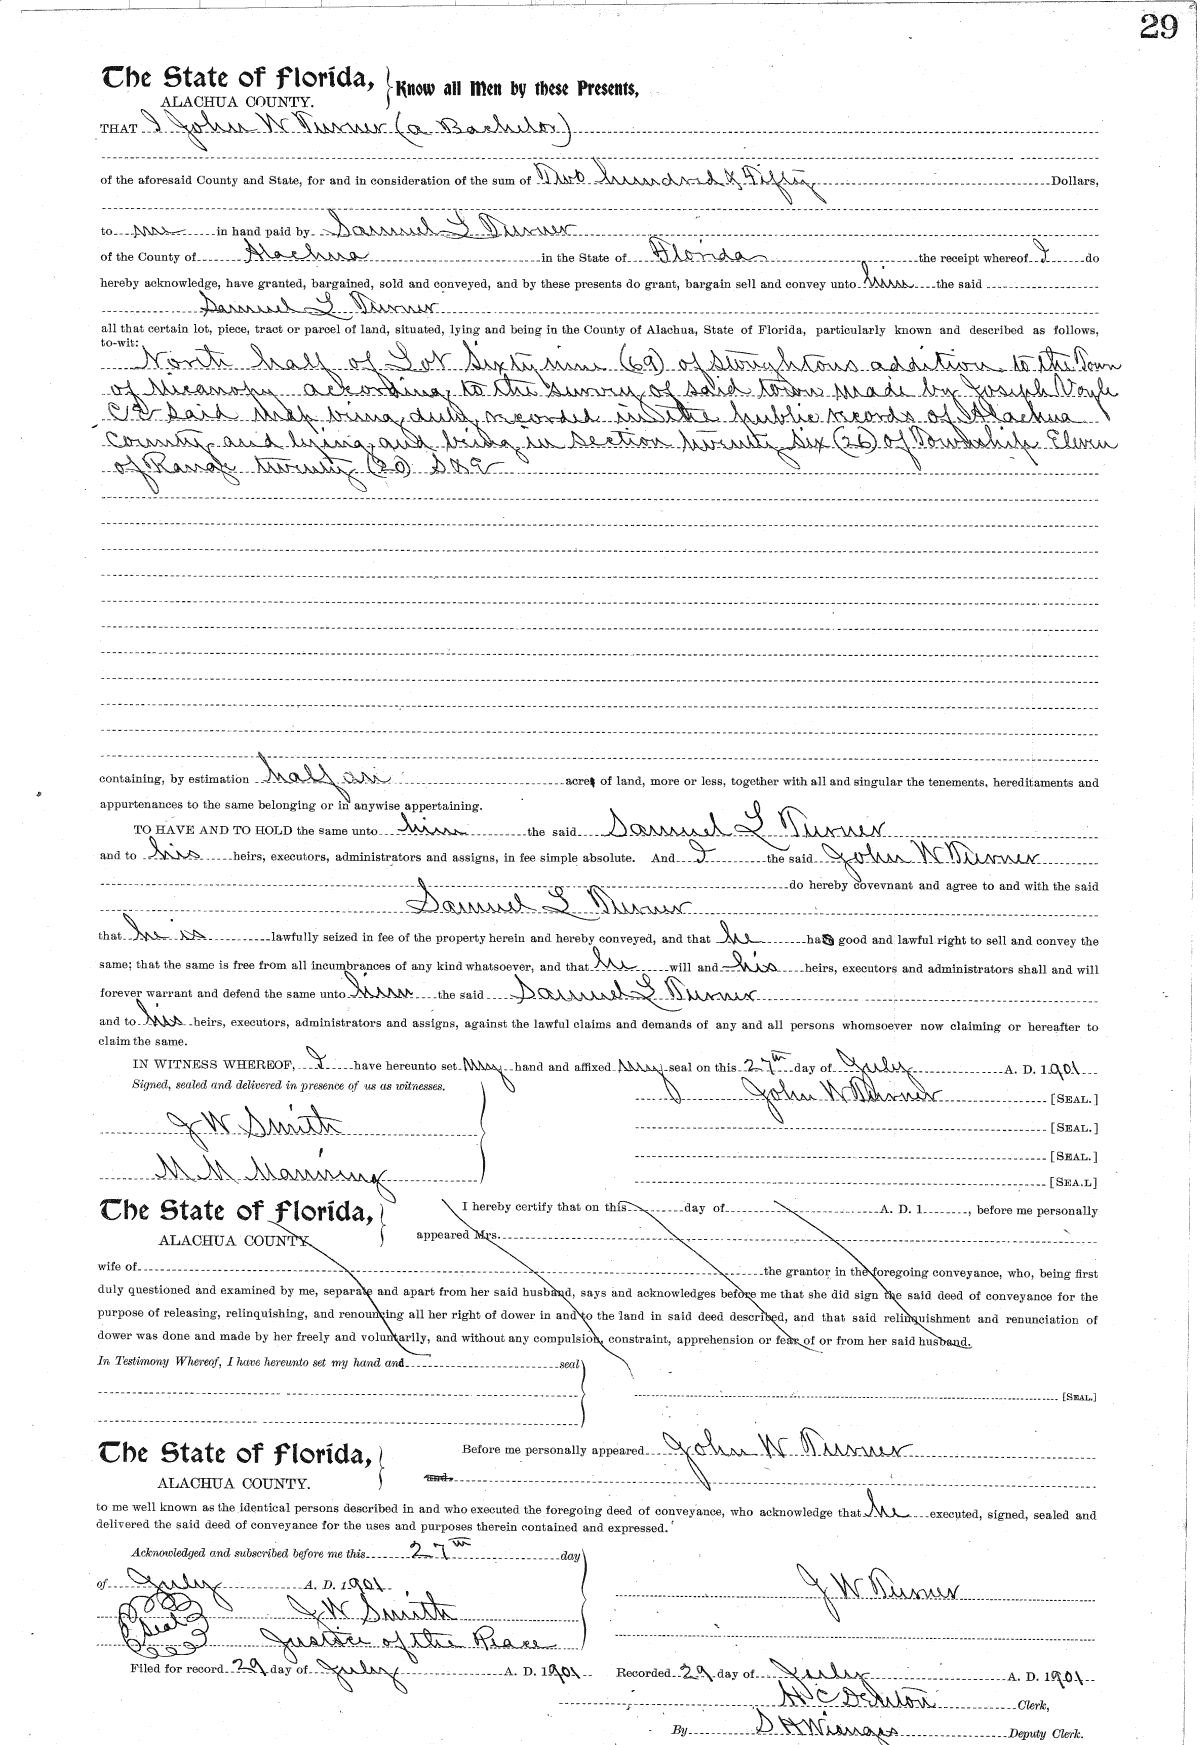 29
The State of Florida, Know all Men by these Presents,
ALACHUA COUNTY.
THAT I John W Turner (a Bachelor)
of the aforesaid County and State, for and in consideration of the sum of Two hundred & Fifty Dollars,
to me in hand paid by Samuel L Turner
of the County of Alachua in the State of Florida the receipt whereof I do
hereby acknowledge, have granted, bargained, sold and conveyed, and by these presents do grant, bargain sell and convey unto him the said
Samuel L Turner
all that certain lot, piece, tract or parcel of land, situated, lying and being in the County of Alachua, State of Florida, particularly known and described as follows,
to-wit:
North half of Lot Sixty nine (69) of Stoughtons addition to the Town
of Micanopy according to the survey of said town made by Joseph Voyle
C E Said map being duly recorded in the public records of Alachua
County and lying and being in section twenty six (26) of Township Eleven
of Range twenty (20) S & E
containing, by estimation half an acre of land, more or less, together with all and singular the tenements, hereditaments and
appurtenances to the same belonging or in anywise appertaining.
TO HAVE AND TO HOLD the same unto him the said Samuel L Turner
and to his heirs, executors, administrators and assigns, in fee simple absolute. And I the said John W Turner
do hereby covevnant and agree to and with the said
Samuel L Turner
that he is lawfully seized in fee of the property herein and hereby conveyed, and that he has good and lawful right to sell and convey the
same; that the same is free from all incumbrances of any kind whatsoever, and that he will and his heirs, executors and administrators shall and will
forever warrant and defend the same unto him the said Samuel L Turner
and to his heirs, executors, administrators and assigns, against the lawful claims and demands of any and all persons whomsoever now claiming or hereafter to
claim the same.
IN WITNESS WHEREOF, I have hereunto set my hand and affixed my seal on this 27th day of July A. D. 1901
Signed, sealed and delivered in presence of us as witnesses.
John W Turner [SEAL.]
J W Smith [SEAL.]
[SEAL.]
M M Manning [SEA.L]
The State of Florida, I hereby certify that on this day of A. D. 1, before me personally
ALACHUA COUNTY appeared Mrs.
wife of the grantor in the foregoing conveyance, who, being first
duly questioned and examined by me, separate and apart from her said husband, says and acknowledges before me that she did sign the said deed of conveyance for the
purpose of releasing, relinquishing, and renouncing all her right of dower in and to the land in said deed described, and that said relinquishment and renunciation of
dower was done and made by her freely and voluntarily, and without any compulsion, constraint, apprehension or fear of or from her said husband.
In Testimony Whereof, I have hereunto set my hand and seal
[SEAL.]
The State of Florida, Before me personally appeared John W Turner
ALACHUA COUNTY. and.
to me well known as the identical persons described in and who executed the foregoing deed of conveyance, who acknowledge that he executed, signed, sealed and
delivered the said deed of conveyance for the uses and purposes therein contained and expressed.
Acknowledged and subscribed before me this 27th day
of July A. D. 1901
J W Turner
Seal J W Smith
Justice of the Peace
Filed for record 29 day of July A. D. 1901 Recorded 29 day of July A. D. 1901
H C Denton Clerk,
By S H Wienges Deputy Clerk.